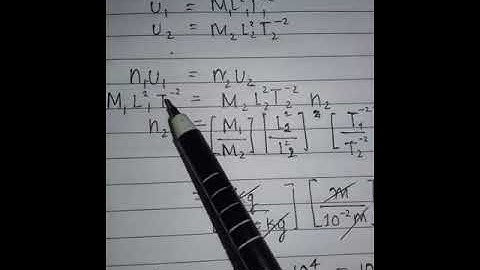 U₁ = M₁L₁²T₁⁻²
U₂ = M₂ L₂² T₂⁻²
n₁U₁ = n₂U₂
M₁ L₁² T⁻² = M₂ L₂² T₂⁻² n₂
n₂ = [M₁/M₂] [L₂²/L₂²] [T₁⁻²/T₂⁻²
kg/kg] [m/10⁻² m]
10⁴ = 10